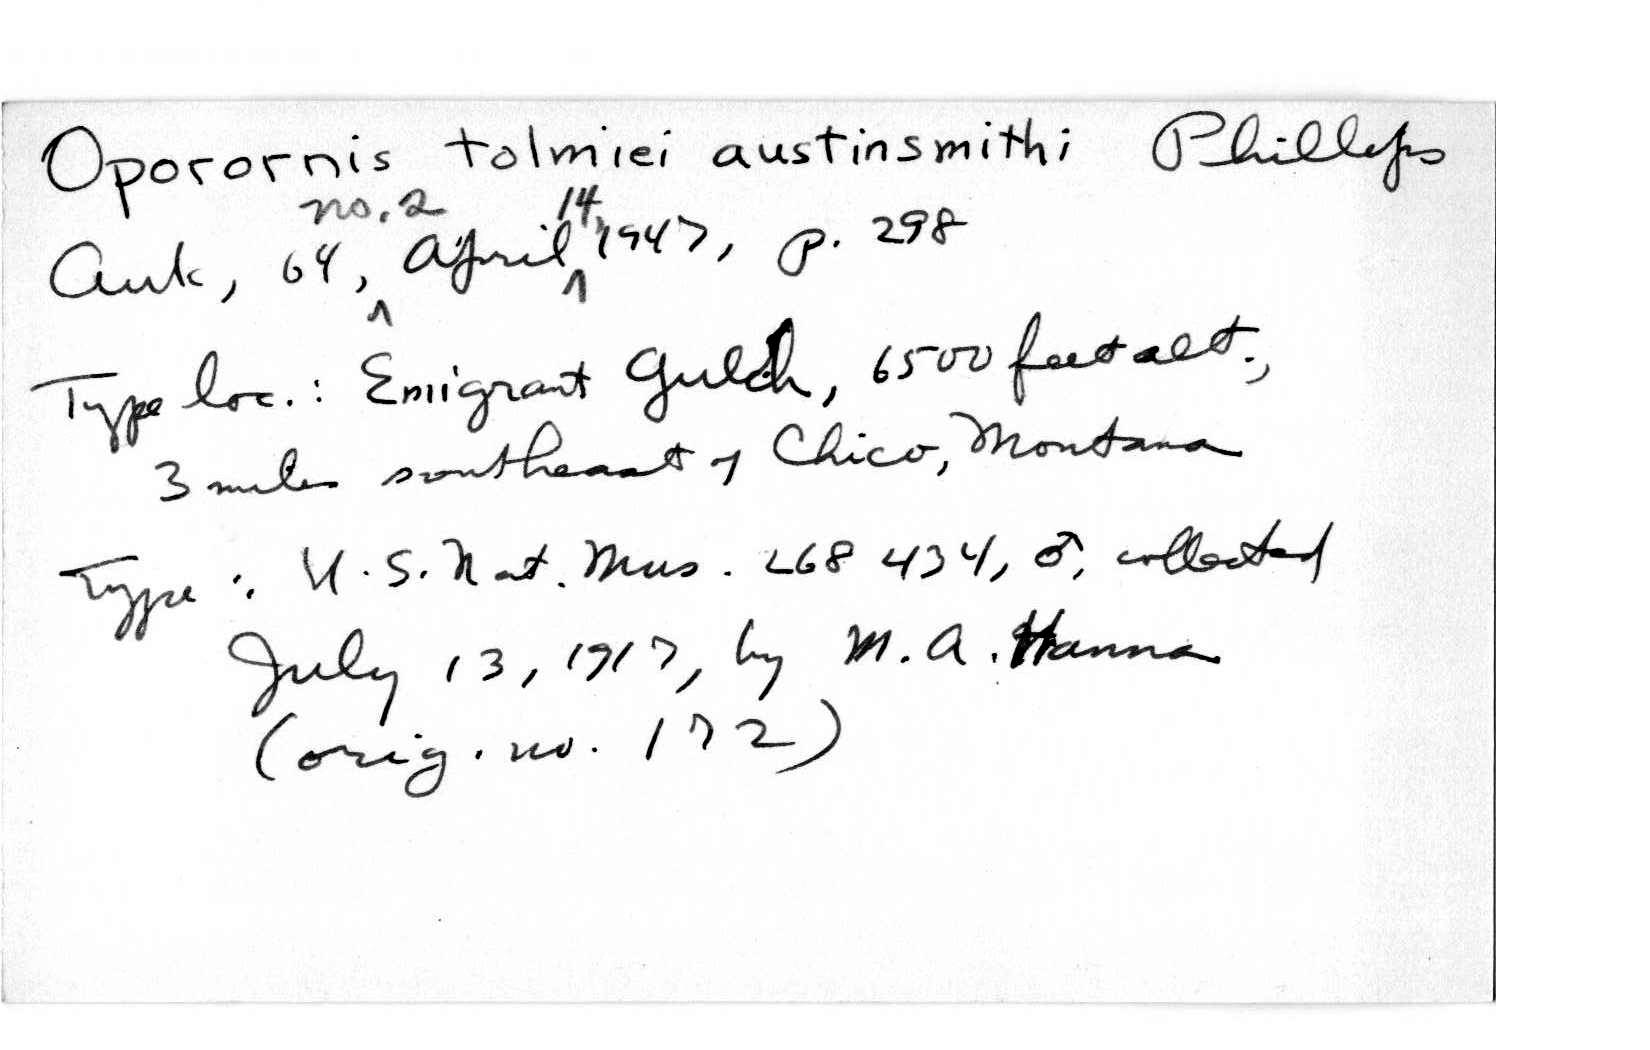 Oporornis tolmiei austinsmithi Phillips
Auk, 64, no. 2 April 14, 1947, p. 298
Type loc.: Emigrant Gulch, 6500 feet alt.,
3 miles southeast of Chico, Montana
Type: U.S. Nat. Mus. 268434, ♂, collected
July 13, 1917, by M.A. Hanna
(orig. no. 172)